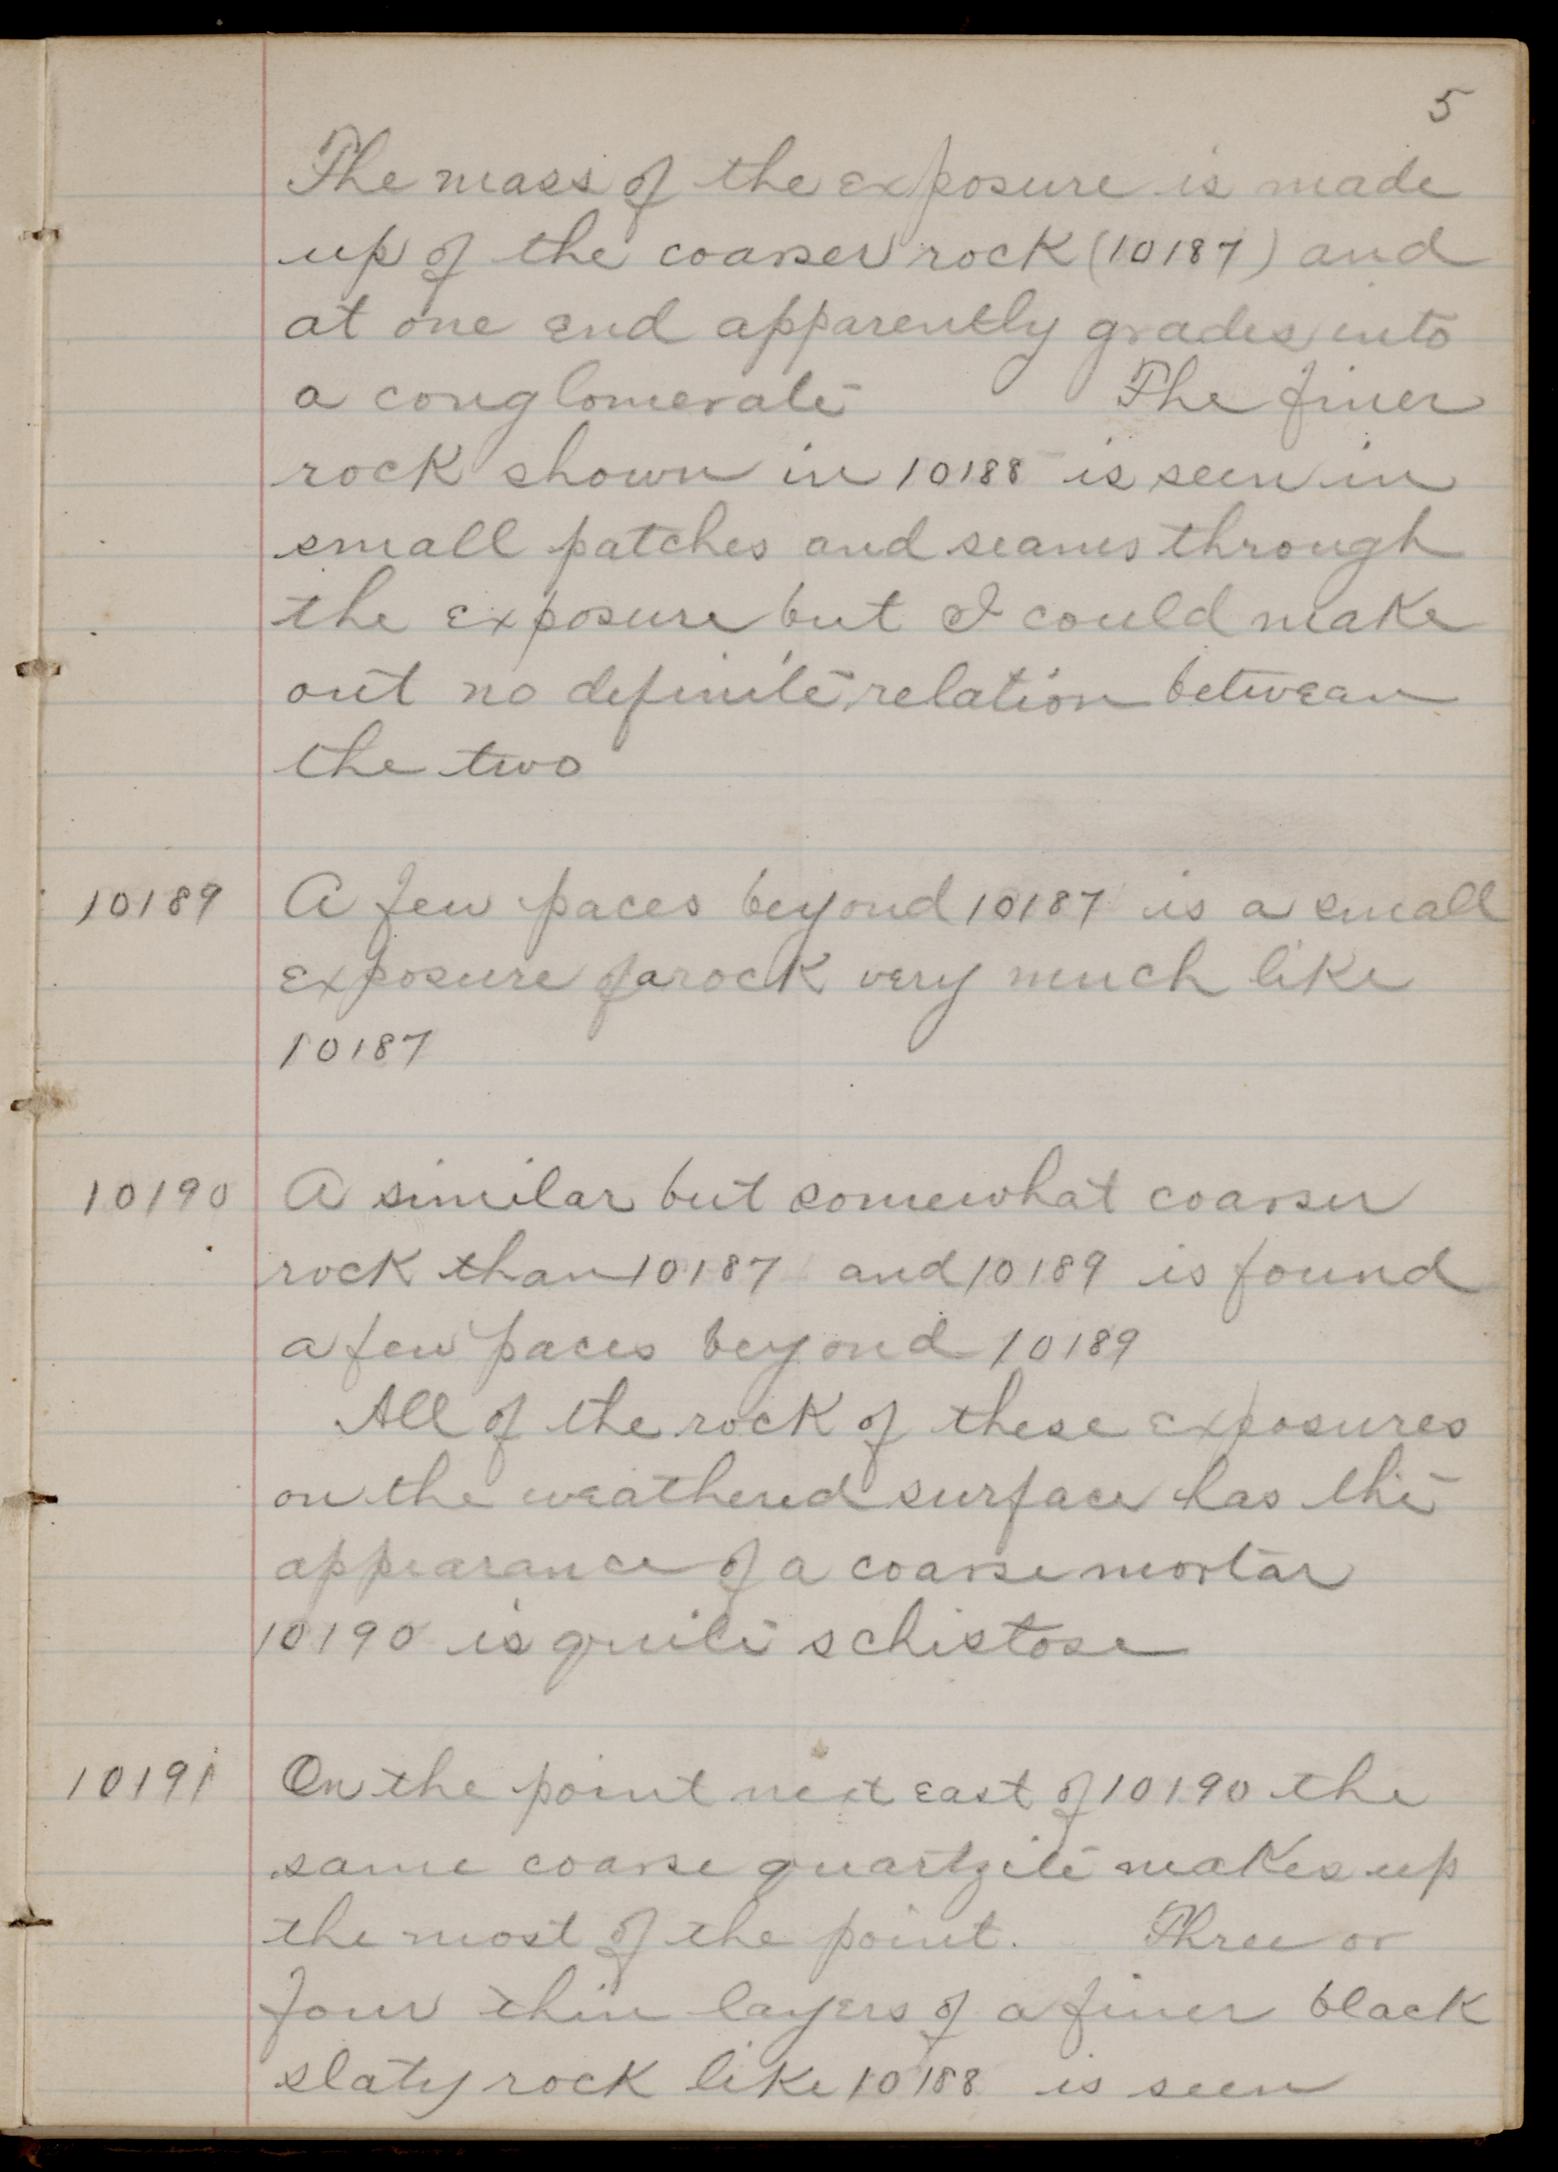 5
The mass of the exposure is made
up of the coarser rock (10187) and
at one end apparently grades into
a conglomerate The finer
rock shown in 10188 is seen in
small patches and seams through
the exposure but I could make
out no definite relation between
the two
10189 A few paces beyond 10187 is a small
exposure of a rock very much like
10187
10190 A similar but somewhat coarser
rock than 10187 and 10189 is found
a few paces beyond 10189
All of the rock of these exposures
on the weathered surface has the
appearance of a coarse mortar
10190 is quite schistose
10191 On the point next east of 10190 the
same coarse quartzite makes up
the most of the point. Three or
four thin layers of a finer black
slaty rock like 10188 is seen